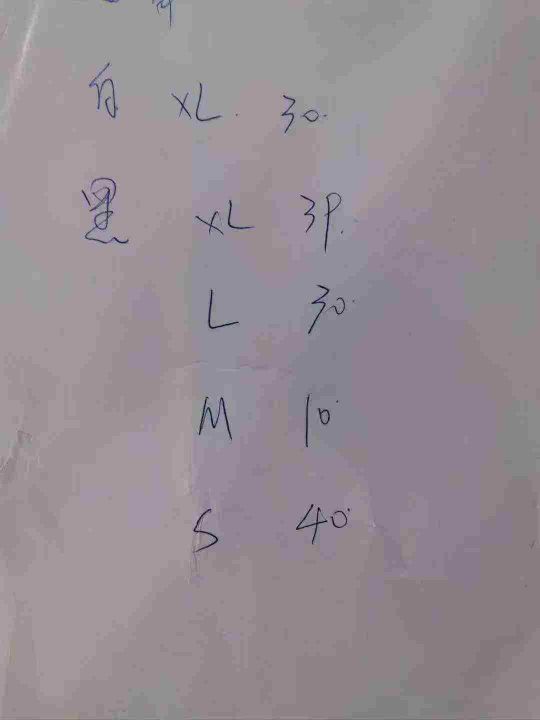 白 XL 30
黑 XL 39
L 30
M 10
S 40